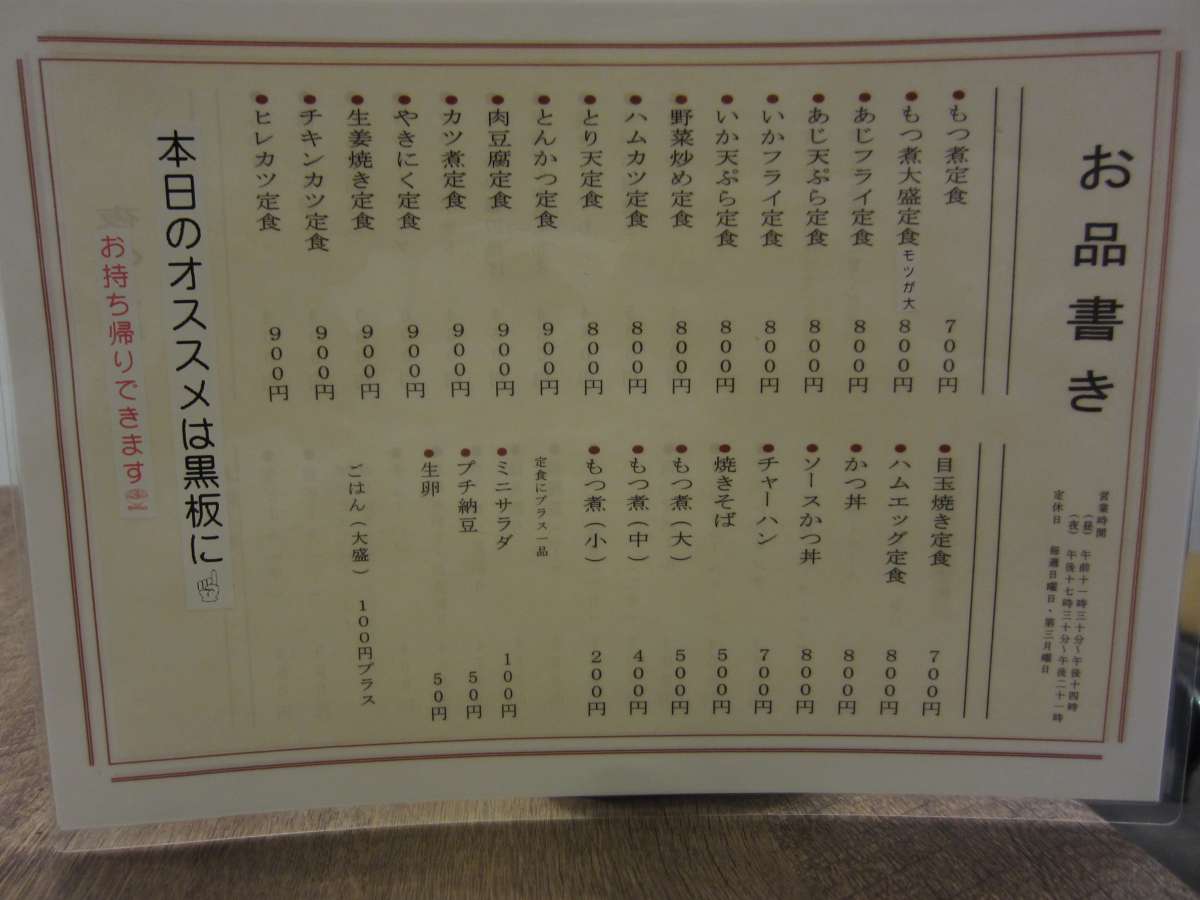 お品書き
営業時間
(昼) 午前十一時三十分~午後十四時
(夜) 午後十七時三十分~午後二十一時
定休日 毎週日曜日・第三月曜日
●もつ煮定食 700円
●もつ煮大盛定食 モツが大 800円
●あじフライ定食 800円
●あじ天ぷら定食 800円
●いかフライ定食 800円
●いか天ぷら定食 800円
●野菜炒め定食 800円
●ハムカツ定食 800円
●とり天定食 800円
●とんかつ定食 900円
●肉豆腐定食 900円
●カツ煮定食 900円
●やきにく定食 900円
●生姜焼き定食 900円
●チキンカツ定食 900円
●ヒレカツ定食 900円
●目玉焼き定食 700円
●ハムエッグ定食 800円
●かつ丼 800円
●ソースかつ丼 800円
●チャーハン 700円
●焼きそば 500円
●もつ煮(大) 500円
●もつ煮(中) 400円
●もつ煮(小) 200円
定食にプラス一品
●ミニサラダ 100円
●プチ納豆 50円
●生卵 50円
ごはん(大盛) 100円プラス
本日のオススメは黒板に☝
お持ち帰りできます